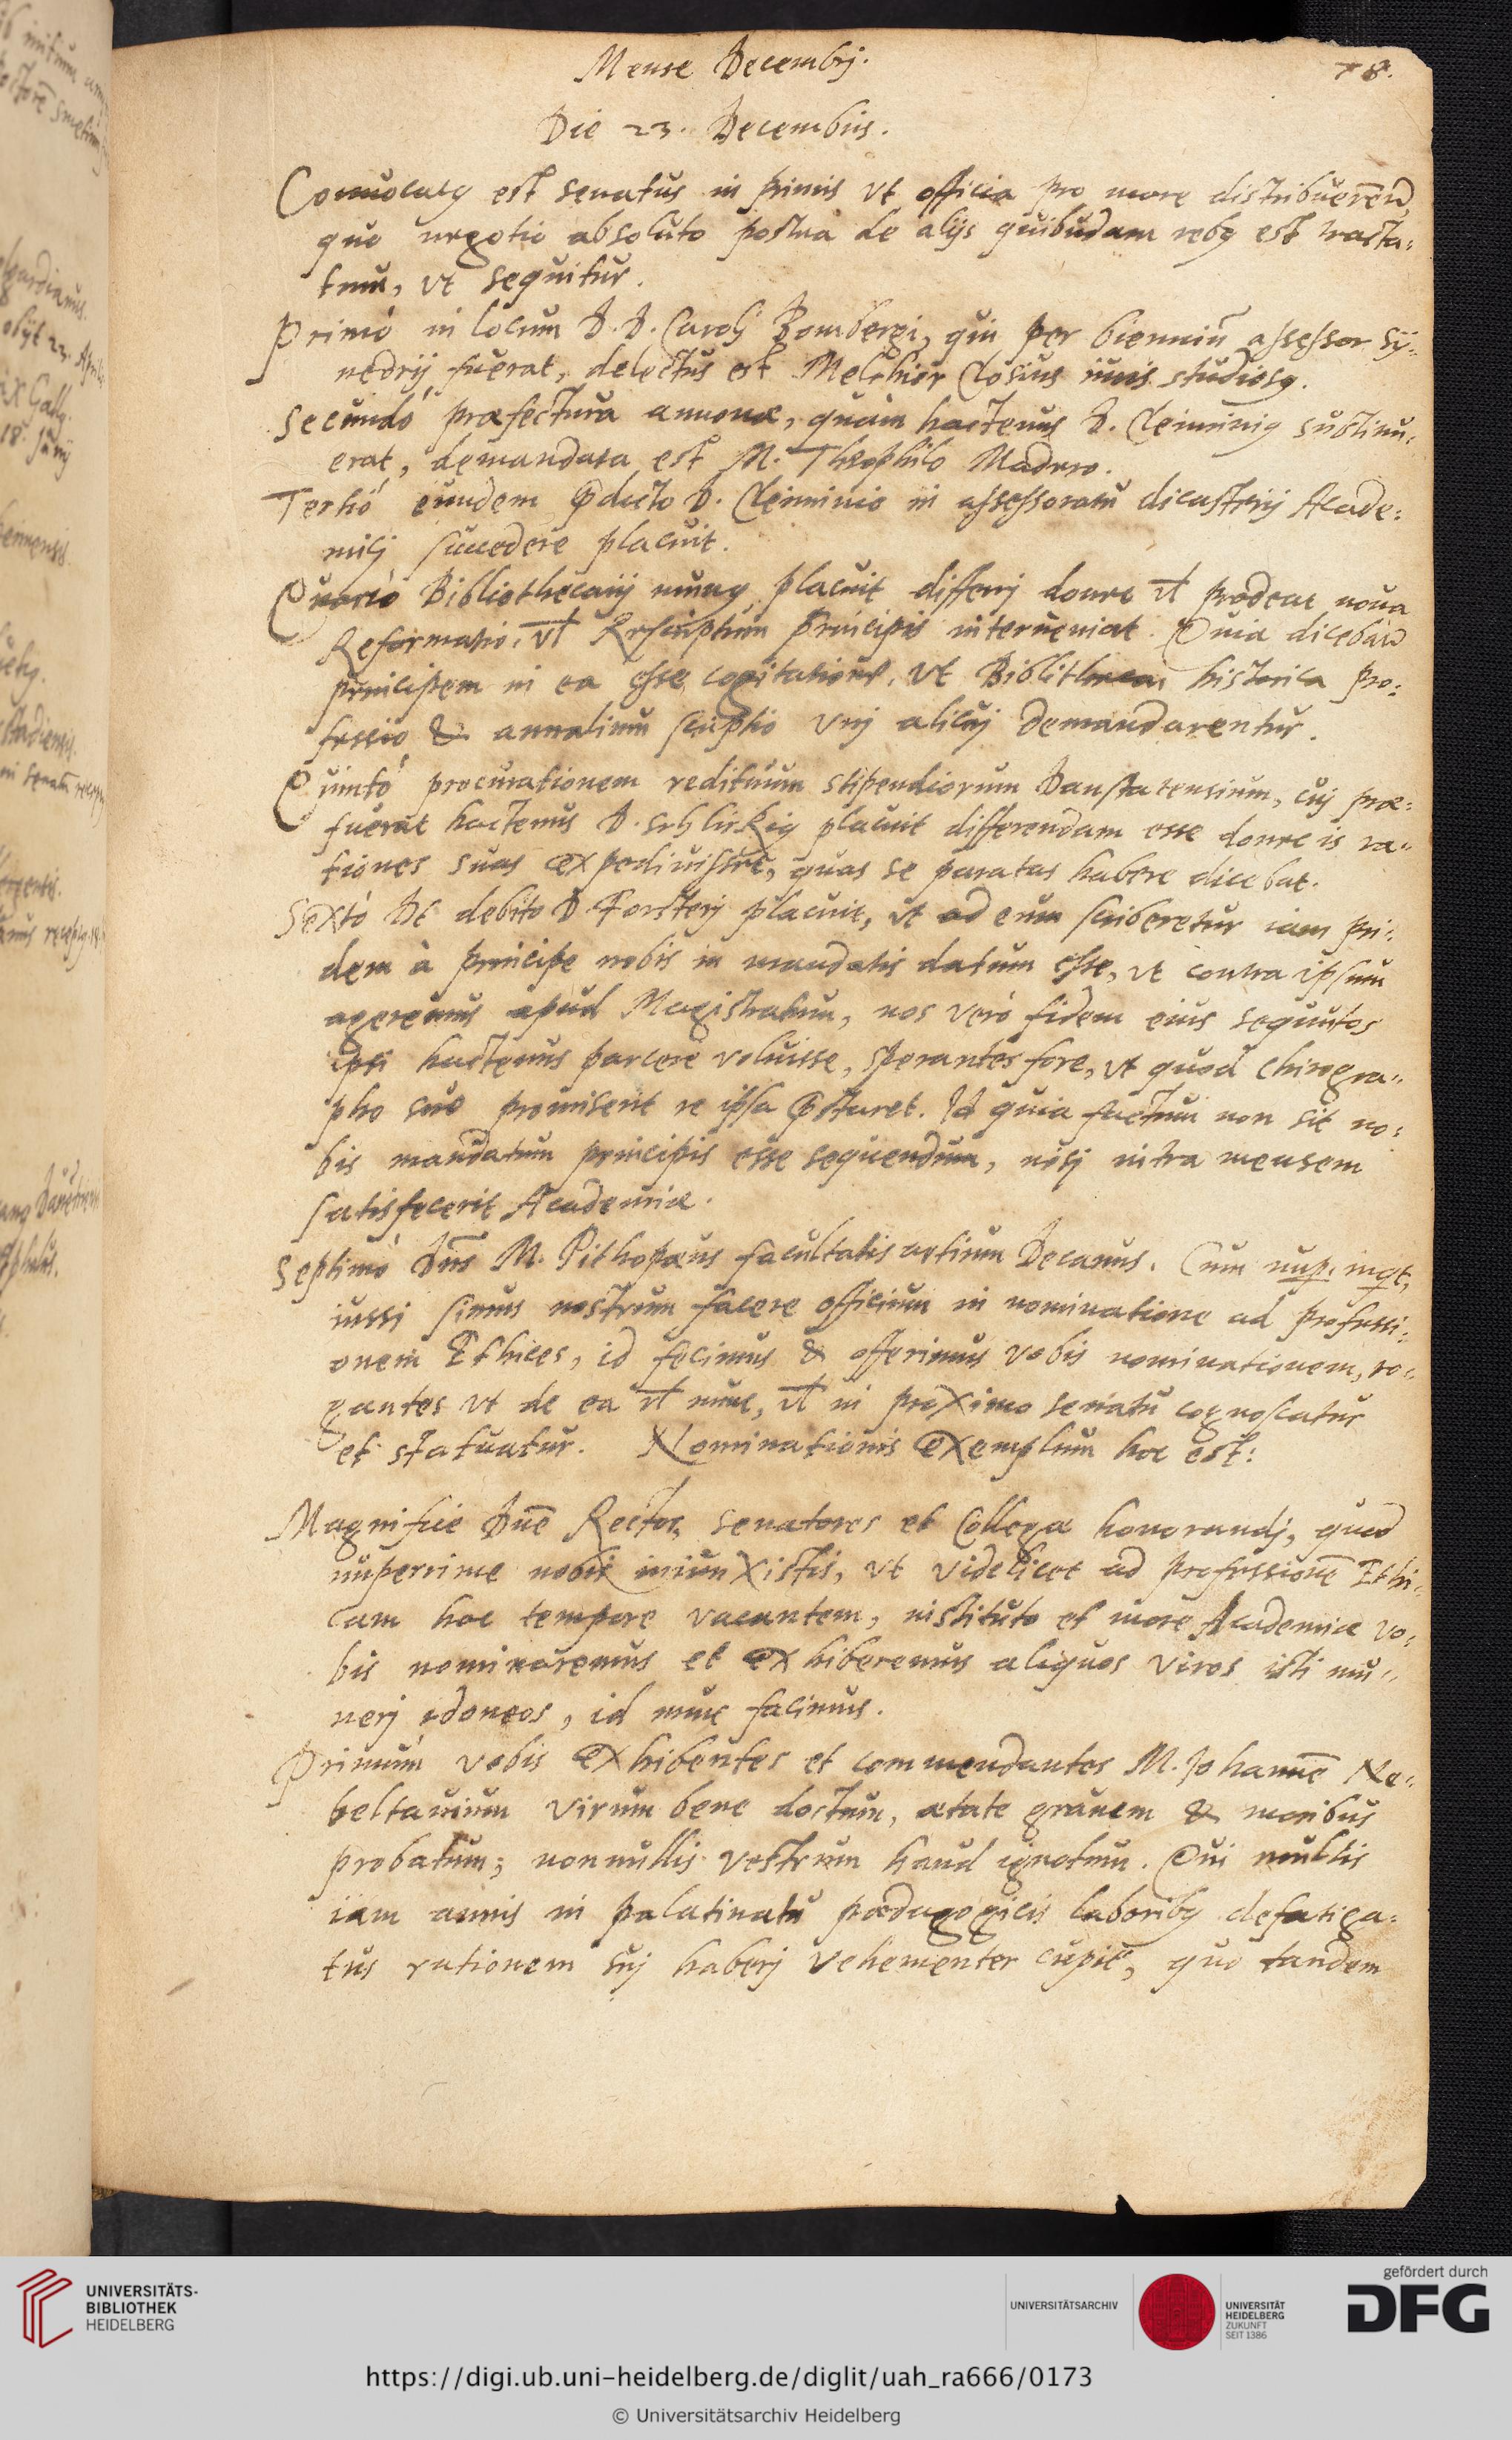 Mense Decembrj.
78.
Die 23. Decembris.
Conuocatus est senatus in primis vt officia pro more distribuerent̄,
quo negotio absoluto postea de alijs quibusdam rebus est tracta:
tum, vt sequitur.
Primò in locum D. D. Carolj Bombergi, qui per bienniū assessor Sy:
nedrij fuerat, delectus est Melchior Closius iuris studiosus.
Secundò præfectura annonæ, quam hactenus D. Cleiminius sustinu:
erat, demandata est M. Theophilo Madero.
Tertiò eundem p̄dicto D. Cleiminio in assessoratu dicasterij Acade:
micj succedere placuit.
Quartò Bibliothecarij munus placuit differrj donec vł prodeat noua
Reformatio, vł Rescriptum principis interueniat. Quia dicebat̄
principem in ea esse cogitatione, vt Bibliothecae, historica pro:
fessio & annalium scriptio vnj alicuj demandarentur.
Quintò procurationem redituum stipendiorum Danstatensium, cuj præ:
fuerat hactenus D. Schlickius placuit differendam esse donec is ra:
tiones suas expediuisset, quas se paratas habere dicebat.
Sextò De debito D. Forsterj placuit, vt ad eum scriberetur iam pri:
dem à principe nobis in mandatis datum esse, vt contra ipsum
ageremus apud Magistratum, nos verò fidem eius sequutos
ipsi hactenus parcere voluisse, sperantes fore, vt quod chirogra:
pho suo promiserit re ipsa p̄staret. Id quia factum non sit no:
bis mandatum principis esse sequendum, nisj intra mensem
satisfecerit Academiæ.
Septimò Dn̄s M. Pithopæus facultatis artium Decanus. Cum nup. inqt,
iussi simus nostrum facere officium in nominatione ad professi:
onem Ethices, id fecimus & offerimus vobis nominationem, ro:
gantes vt de ea vł nunc, vł in proximo senatu cognoscatur
et statuatur. Nominationis exemplum hoc est:
Magnifice Dn̄e Rector, senatores et Collegæ honorandj, quod
nuperrime nobis iniunxistis, vt videlicet ad professionē Ethi:
cam hoc tempore vacantem, instituto et more Academiæ vo:
bis nominaremus et exhiberemus aliquos viros isti mu:
nerj idoneos, id nunc facimus.
Primùm vobis exhibentes et commendantes M. Johannē Ne:
beltauium virum bene doctum, ætate grauem & moribus
probatum; nonnullis vestrum haud ignotum. Qui multis
iam annis in palatinatu pædagogicis laboribus defatiga:
tus rationem suj haberj vehementer cupit, quo tandem
UNIVERSITÄTS-
BIBLIOTHEK
HEIDELBERG
UNIVERSITÄTSARCHIV
UNIVERSITÄT
HEIDELBERG
ZUKUNFT
SEIT 1386
gefördert durch
DFG
https://digi.ub.uni-heidelberg.de/diglit/uah_ra666/0173
© Universitätsarchiv Heidelberg